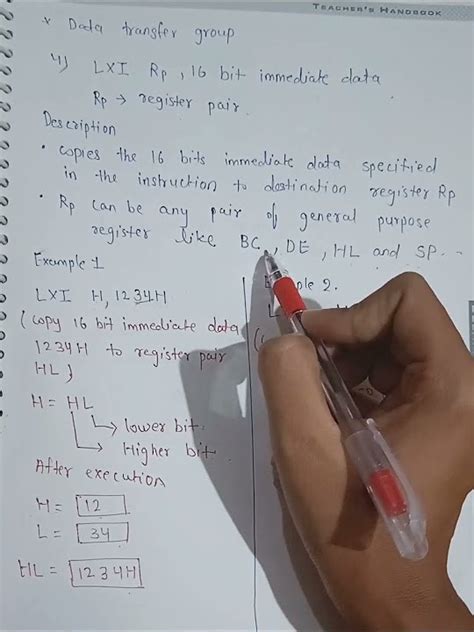 TEACHER'S HANDBOOK
* Data transfer group
4) LXI Rp, 16 bit immediate data
Rp → register pair.
Description
• copies the 16 bits immediate data specified
in the instruction to destination register Rp
• Rp can be any pair of general purpose
register like BC, DE, HL and SP.
Example 1
LXI H, 1234H
(copy 16 bit immediate data
1234H to register pair
HL)
H = HL
lower bit.
Higher bit.
After execution
H = 12
L = 34
HL = 1234H
ple 2.